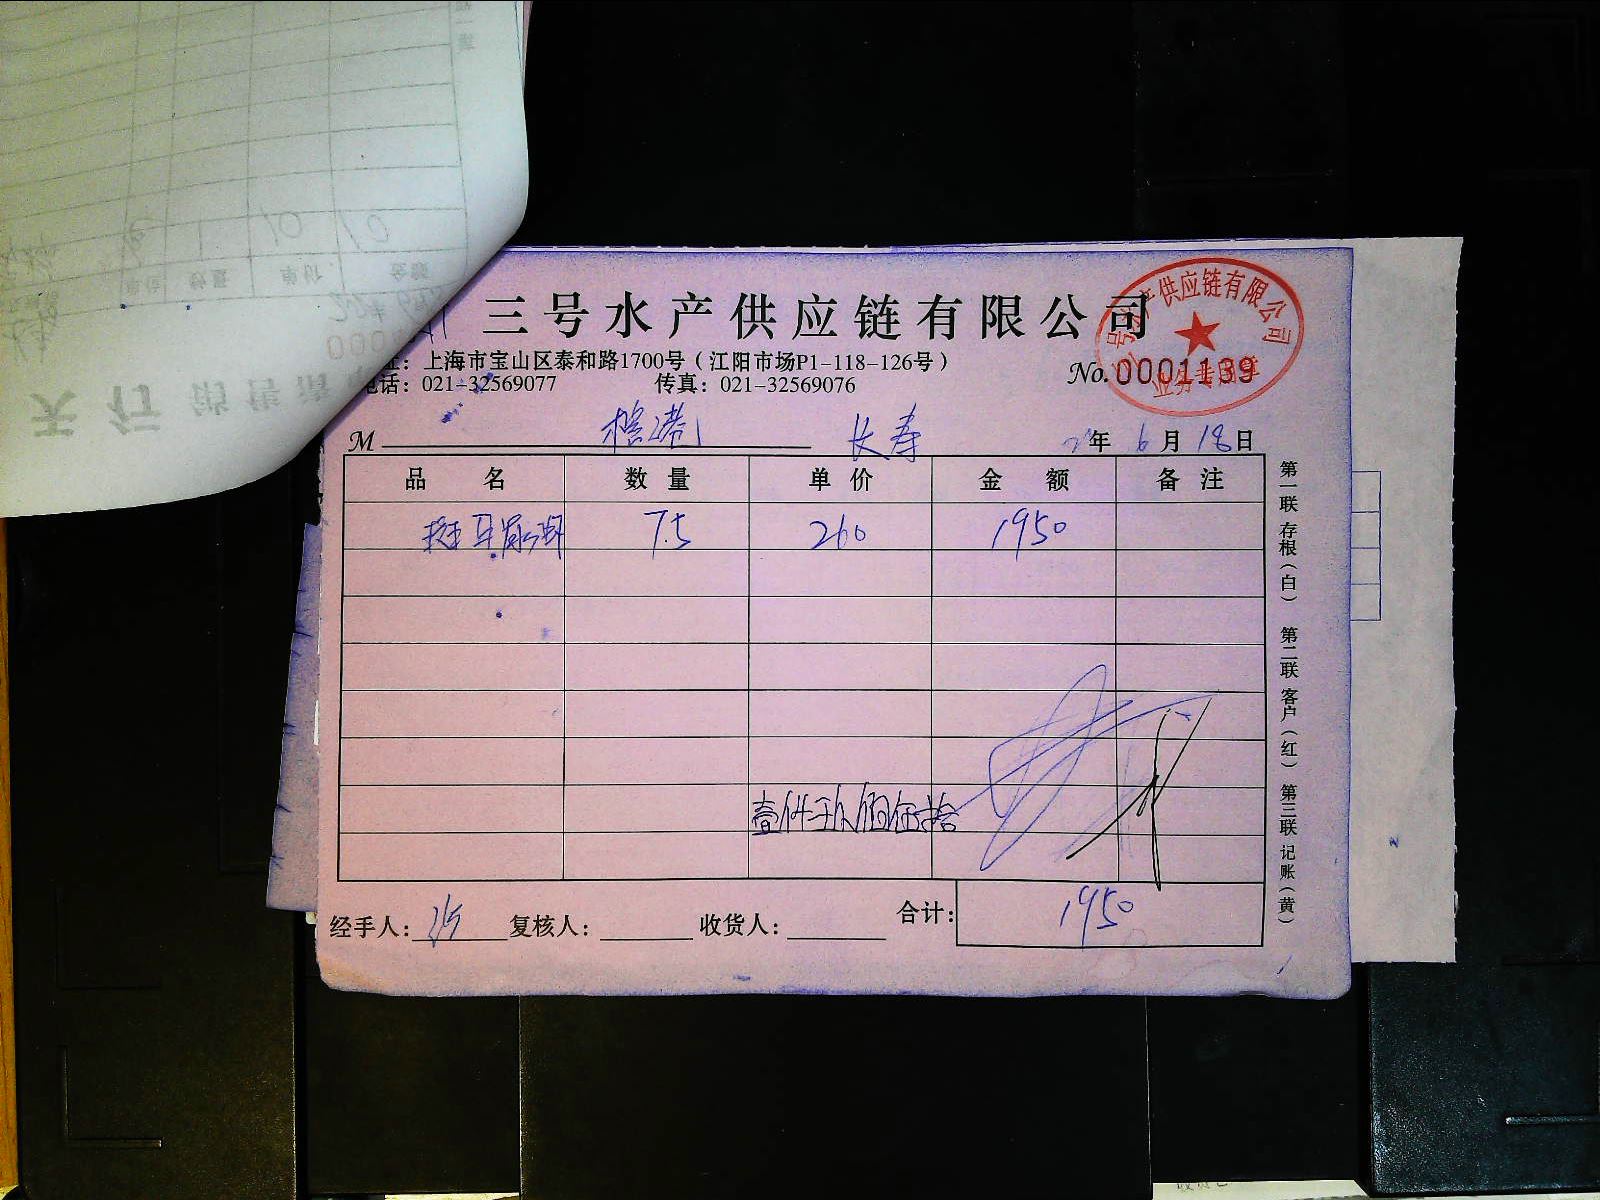 三号水产供应链有限公司
址：上海市宝山区泰和路1700号（江阳市场P1-118-126号）
电话：021-32569077 传真：021-32569076
No. 0001139
号水产供应链有限公司
业务专用章
M 长寿 年 6 月 18 日
品名 数量 单价 金额 备注
7.5 260 1950
壹仟玖佰伍拾
经手人： 复核人： 收货人： 合计： 1950
第一联 存根（白） 第二联 客户（红） 第三联 记账（黄）
天行 销售清
单位 数量 单价 金额
1 10 10